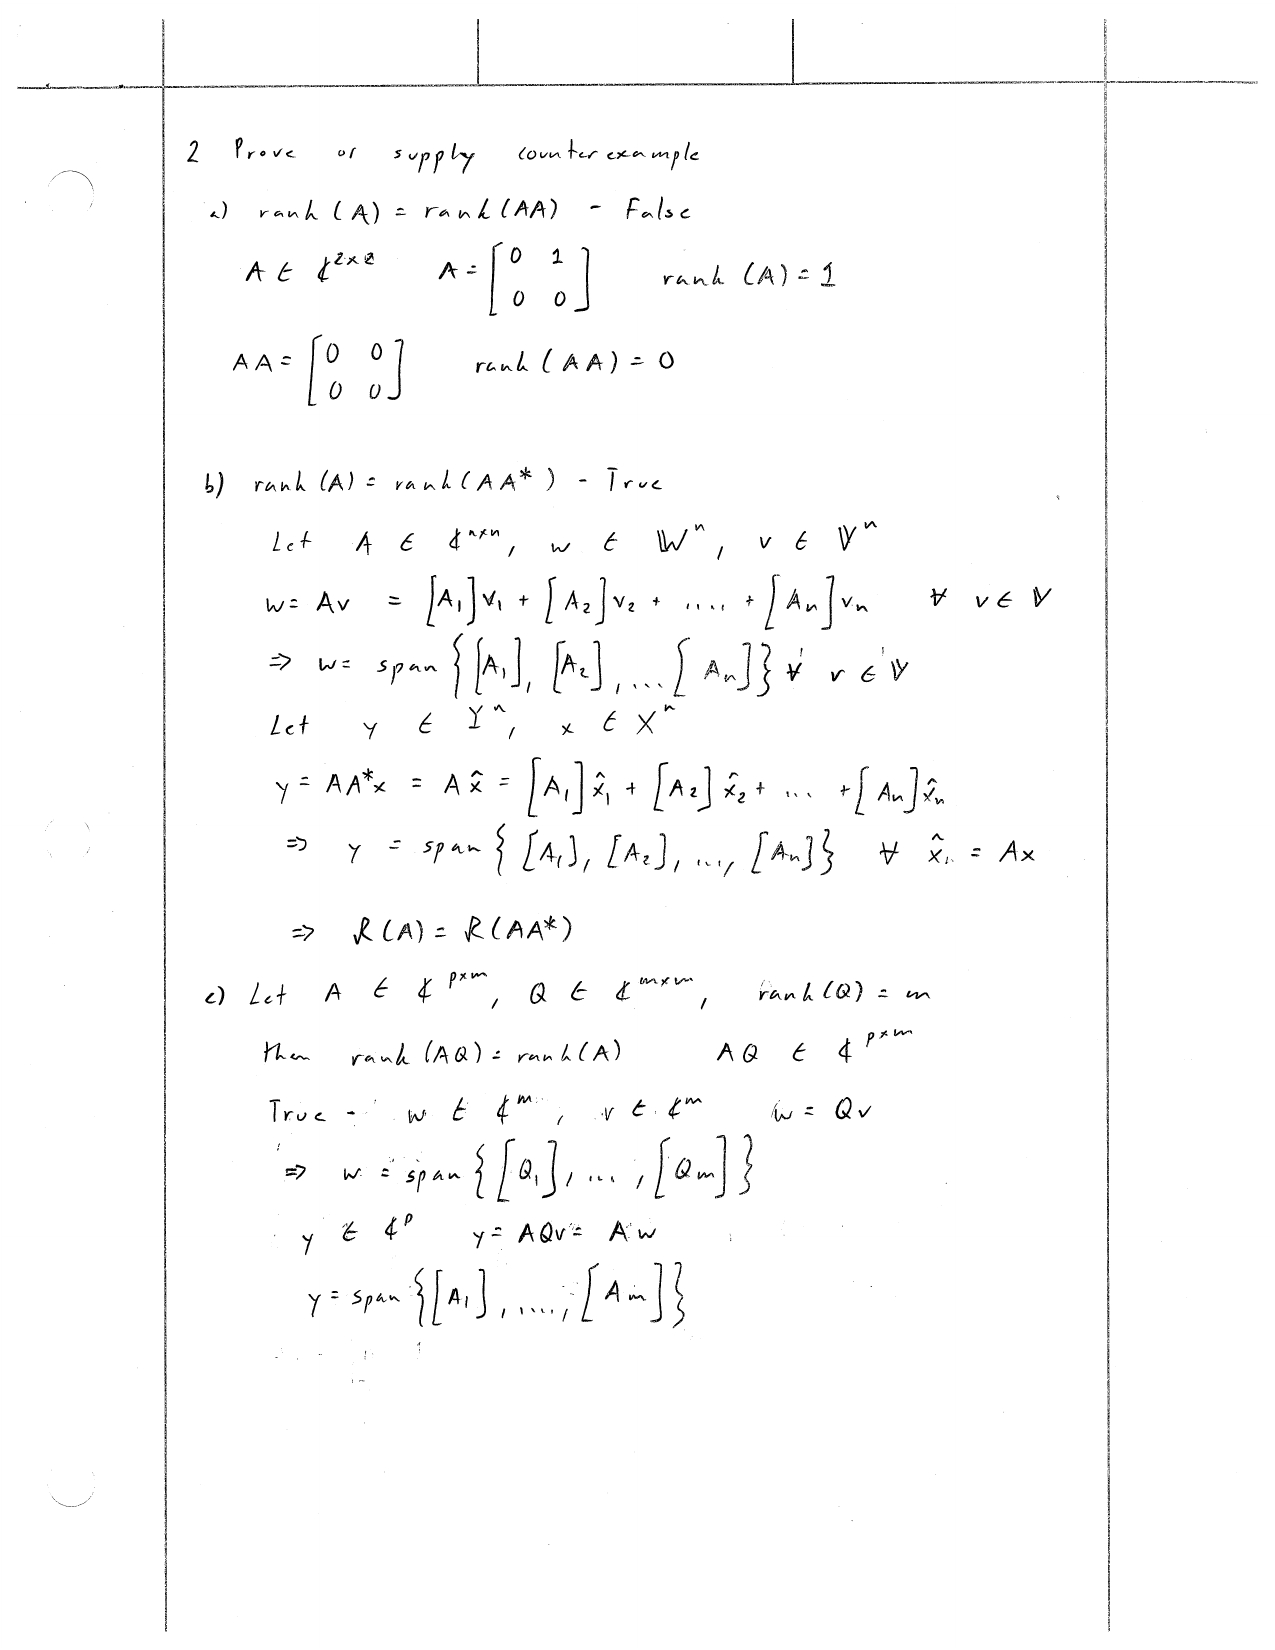 2 Prove or supply counterexample
a) rank (A) = rank (AA) - False
A ∈ ℂ^{2×2} A = [0 1; 0 0] rank (A) = 1
AA = [0 0; 0 0] rank (AA) = 0
b) rank (A) = rank (AA*) - True
Let A ∈ ℂ^{n×n}, w ∈ 𝕎^n, v ∈ 𝕍^n
w = Av = [A₁]v₁ + [A₂]v₂ + .... + [Aₙ]vₙ ∀ v ∈ 𝕍
⇒ w = span {[A₁], [A₂], ... [Aₙ]} ∀ v ∈ 𝕍
Let y ∈ Y^n, x ∈ X^n
y = AA*x = Ax̂ = [A₁]x̂₁ + [A₂]x̂₂ + ... + [Aₙ]x̂ₙ
⇒ y = span {[A₁], [A₂], ..., [Aₙ]} ∀ x̂ = Ax
⇒ R(A) = R(AA*)
c) Let A ∈ ℂ^{p×m}, Q ∈ ℂ^{m×m}, rank (Q) = m
then rank (AQ) = rank (A) AQ ∈ ℂ^{p×m}
True - w ∈ ℂ^m, v ∈ ℂ^m w = Qv
⇒ w = span {[Q₁], ..., [Qₘ]}
y ∈ ℂ^p y = AQv = Aw
y = span {[A₁], ...., [Aₘ]}